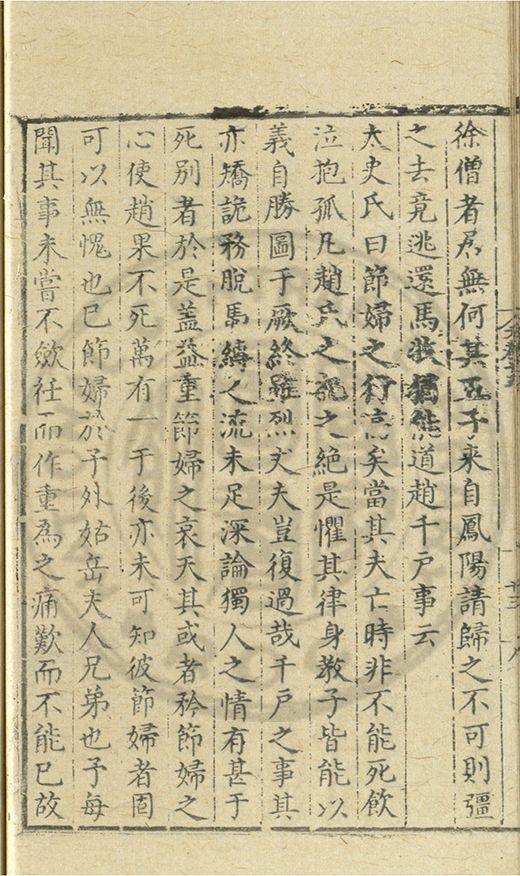 徐僧者居無何其五子來自鳳陽請歸之不可則彊
之去竟逃還馬牧猶能道趙千戸事云
太史氏曰節婦之行高矣當其夫亡時非不能死飲
泣抱孤凡趙氏之祀之絕是懼其律身教子皆能以
義自勝圖于厥終雖烈丈夫豈復過哉千戸之事其
亦矯詭務脫馬縛之流未足深論獨人之情有甚于
死別者於是蓋益重節婦之哀天其或者矜節婦之
心使趙果不死萬有一于後亦未可知彼節婦者固
可以無愧也已節婦於予外姑岳夫人兄弟也予每
聞其事未嘗不歛衽而作重為之痛歎而不能已故